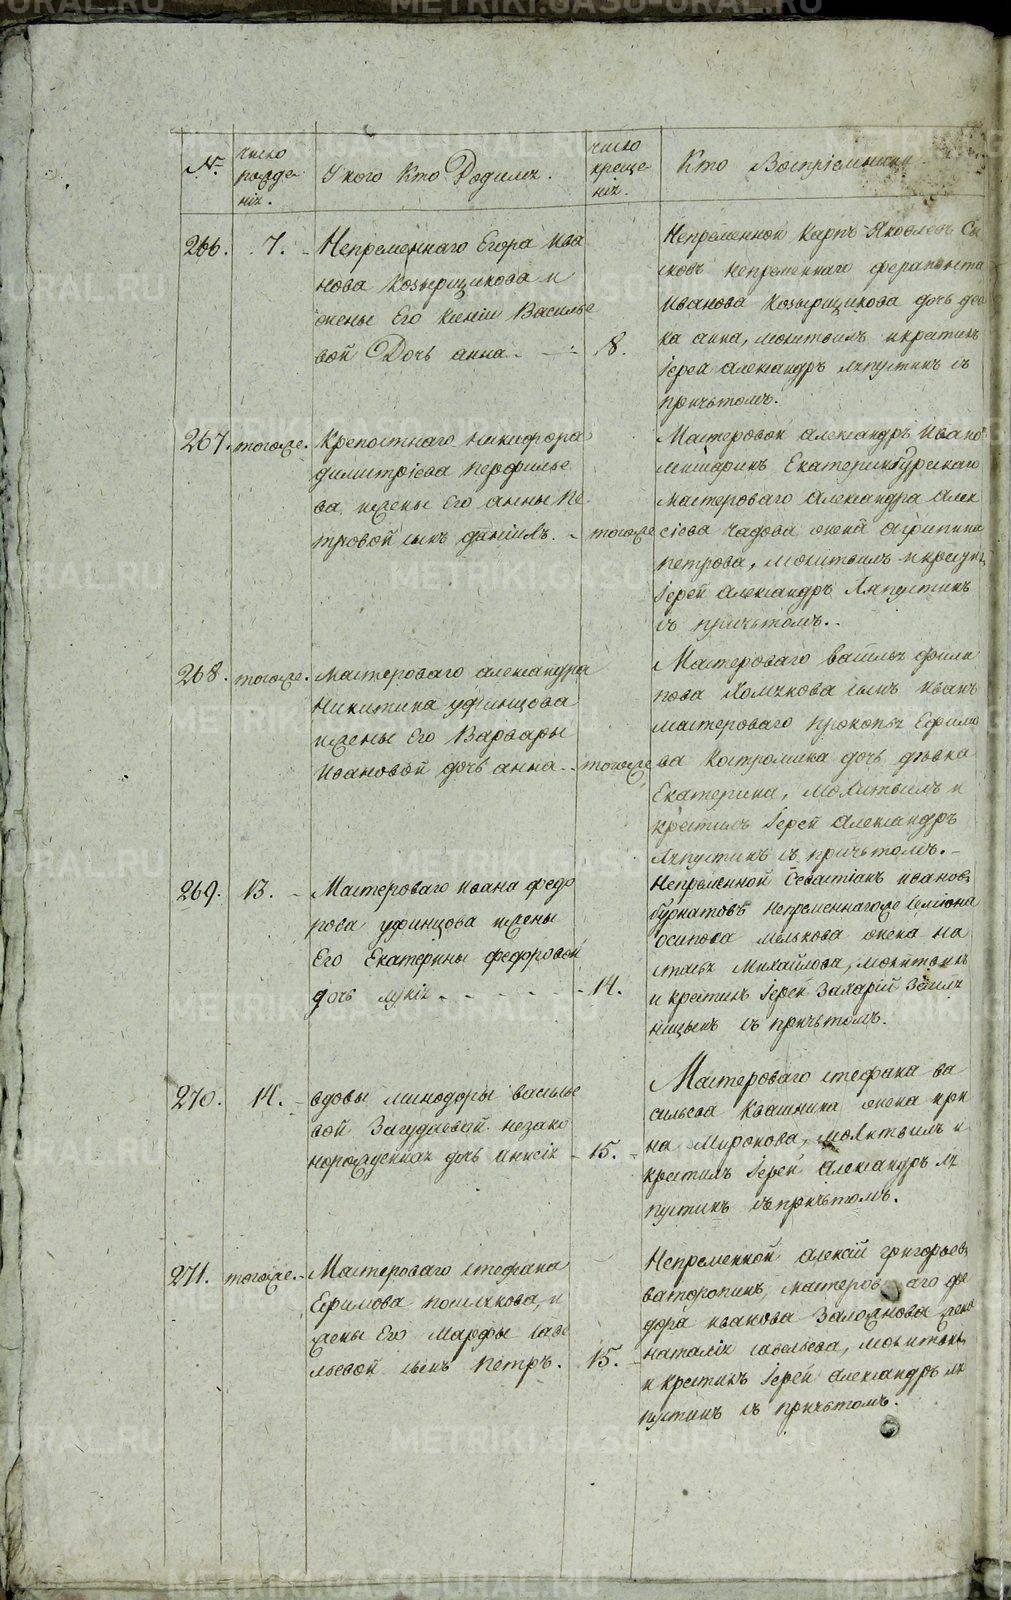 №.
число рожде-
нія.
У кого кто Родился.
число
креще-
нія.
Кто Воспріемники
266.
7.
Непременнаго Егора Ива
нова Козырщикова и
жены Его Ксеніи Василье
вой Дочь анна.
8.
Непременной Карпъ Яковлевъ Сы
ковъ непременнаго ферапонта
Иванова Козырщикова дочь дев
ка анна, молитвилъ икрестилъ
Іерей Александръ Ляпустинъ съ
причьтомъ.
267.
тогоже.
Крепостнаго никифора
димитріева перфилье
ва, ижены Его анны пе
тровой сынъ даніилъ.
тогоже
Мастеровой александръ Ивано
Екатеринбургскаго
мастероваго Александра Алек
сіева Чадова жена агрипина
петрова, молитвилъ икрестил
Іерей Александръ Ляпустинъ
съ причьтомъ.
268.
тогоже.
Мастероваго александра
Никитина уфинцова
ижены Его Варвары
Ивановой дочь анна.
тогоже
Мастероваго василья фили
пова Хомякова сынъ иванъ
мастероваго прокопья Ефимо
ва Костромина дочь девка
Екатерина, молитвилъ и
крестилъ Іерей Александръ
Ляпустинъ съ причьтомъ.
269.
13.
Мастероваго ивана федо
рова уфинцова ижены
Его Екатерины федоровой
дочь лукія
14.
Непременной Севастіанъ иванов
бурнатовъ непременнагоже Симіона
осипова мелькова жена на
стасья Михайлова, молитвилъ
и крестилъ Іерей Захарій
съ причьтомъ.
270.
14.
вдовы минодоры василье
вой Загудаевой незако
норожденная дочь анисія
15.
Мастероваго стефана ва
сильева Квашнина жена ири
на Миронова, молитвилъ и
крестилъ Іерей Александръ ля
пустинъ съпричьтомъ.
271.
тогоже.
Мастероваго стефана
Ефимова посилкова, и
жены Его Марфы саве
льевой сынъ Петръ.
15.
Непременной алексій григорьев
ваторопинъ, мастеров аго фе
дора иванова жена
наталія савельева, молитвил
и крестилъ Іерей Александръ ля
пустинъ съ причьтомъ.
METRIKI.GASO-URAL.RU